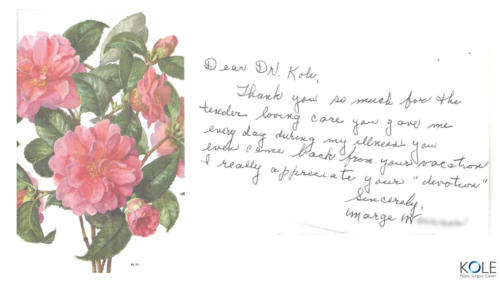 Dear Dr. Kole,
Thank you so much for the
tender loving care you gave me
every day during my illness you
even came back from your vacation
I really appreciate your "devotion"
Sincerely,
Marge
KOLE
Plastic Surgery Center